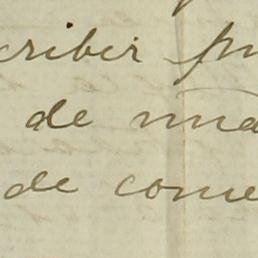 criber
de una
de come